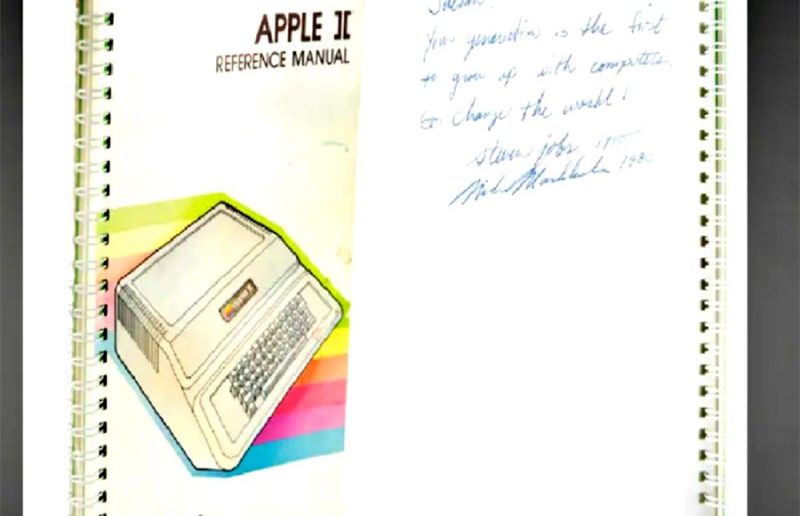 APPLE ][
REFERENCE MANUAL
Julian,
Your generation is the first
to grow up with computers.
Go change the world!
steven jobs 1980
Mike Markkula 1980